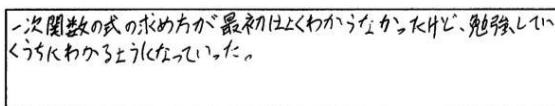 一次関数の式の求め方が最初はよくわからなかったけど、勉強してい
くうちにわかるようになっていった。